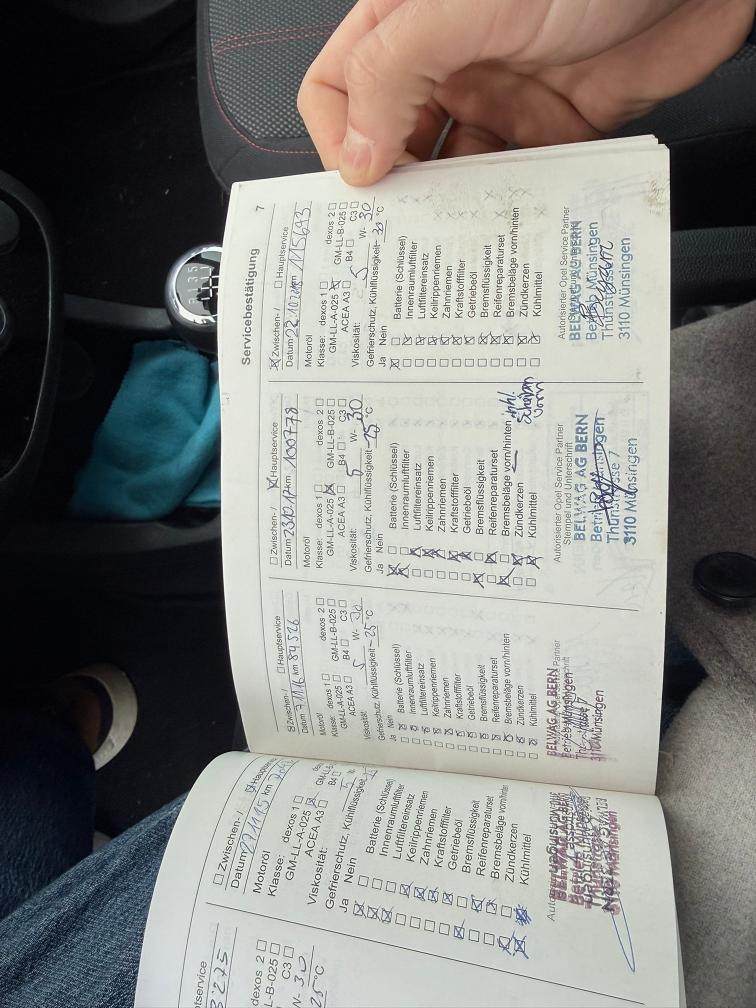 Servicebestätigung 7
Zwischen-/ Hauptservice
Datum 7.11.16 km 84526
Motoröl
Klasse: dexos 1 dexos 2
GM-LL-A-025 GM-LL-B-025
ACEA A3 B4 C3
Viskosität: 5 W- 30
Gefrierschutz, Kühlflüssigkeit -25 °C
Ja Nein
Batterie (Schlüssel)
Innenraumluftfilter
Luftfiltereinsatz
Keilrippenriemen
Zahnriemen
Kraftstofffilter
Getriebeöl
Bremsflüssigkeit
Reifenreparaturset
Bremsbeläge vorn/hinten
Zündkerzen
Kühlmittel
BELWAG AG BERN
Betrieb Münsingen
3110 Münsingen
Zwischen-/ Hauptservice
Datum 23.10.17 km 100778
Motoröl
Klasse: dexos 1 dexos 2
GM-LL-A-025 GM-LL-B-025
ACEA A3 B4 C3
Viskosität: 5 W- 30
Gefrierschutz, Kühlflüssigkeit -25 °C
Ja Nein
Batterie (Schlüssel)
Innenraumluftfilter
Luftfiltereinsatz
Keilrippenriemen
Zahnriemen
Kraftstofffilter
Getriebeöl
Bremsflüssigkeit
Reifenreparaturset
Bremsbeläge vorn/hinten inkl.
Scheiben
vorn
Zündkerzen
Kühlmittel
Autorisierter Opel Service Partner
Stempel und Unterschrift
BELWAG AG BERN
Betrieb Münsingen
Thunstrasse 7
3110 Münsingen
Zwischen-/ Hauptservice
Datum 22.10.20 km 115693
Motoröl
Klasse: dexos 1 dexos 2
GM-LL-A-025 GM-LL-B-025
ACEA A3 B4 C3
Viskosität: 5 W- 30
Gefrierschutz, Kühlflüssigkeit -30 °C
Ja Nein
Batterie (Schlüssel)
Innenraumluftfilter
Luftfiltereinsatz
Keilrippenriemen
Zahnriemen
Kraftstofffilter
Getriebeöl
Bremsflüssigkeit
Reifenreparaturset
Bremsbeläge vorn/hinten
Zündkerzen
Kühlmittel
Autorisierter Opel Service Partner
BELWAG AG BERN
Betrieb Münsingen
3110 Münsingen
Zwischen-/
Datum km
Motoröl
Klasse: dexos 1
GM-LL-A-025
ACEA A3 B4
Viskosität:
Gefrierschutz, Kühlflüssigkeit
Ja Nein
Batterie (Schlüssel)
Innenraumluftfilter
Luftfiltereinsatz
Keilrippenriemen
Zahnriemen
Kraftstofffilter
Getriebeöl
Bremsflüssigkeit
Reifenreparaturset
Bremsbeläge vorn/hinten
Zündkerzen
Kühlmittel
3110 Münsingen
dexos 2
C3